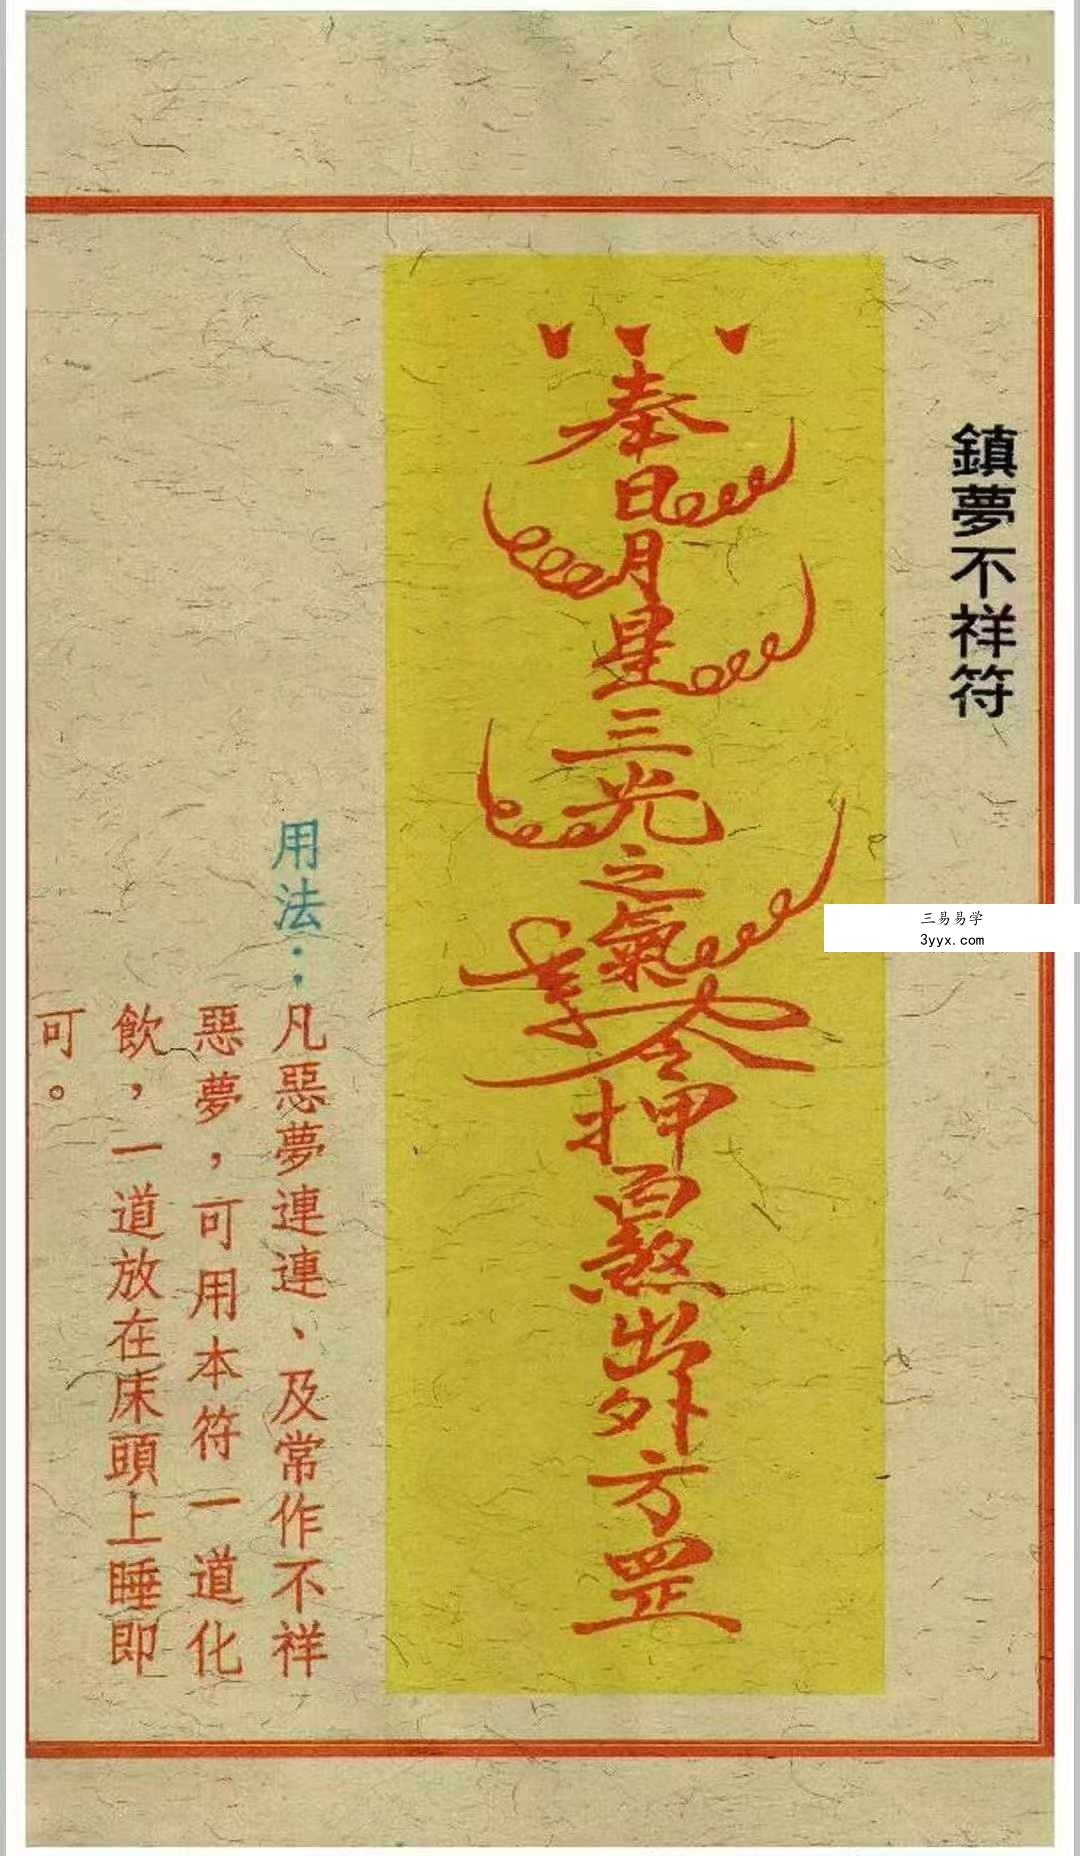 鎮夢不祥符
奉日月星三光之氣令押百煞出外方罡
用法：凡惡夢連連、及常作不祥
惡夢，可用本符一道化
飲，一道放在床頭上睡即
可。
三易易学
3yyx.com